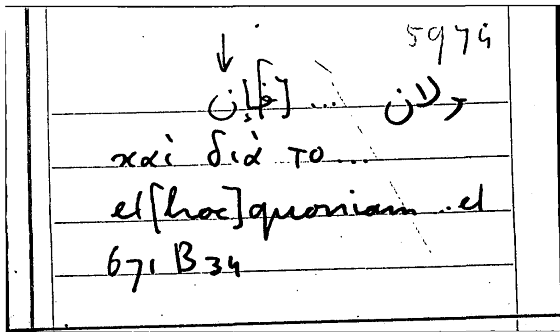 5974
↓
ولان ... [فإن]
καὶ διὰ το...
et [hoc] quoniam .. et
671 B 34